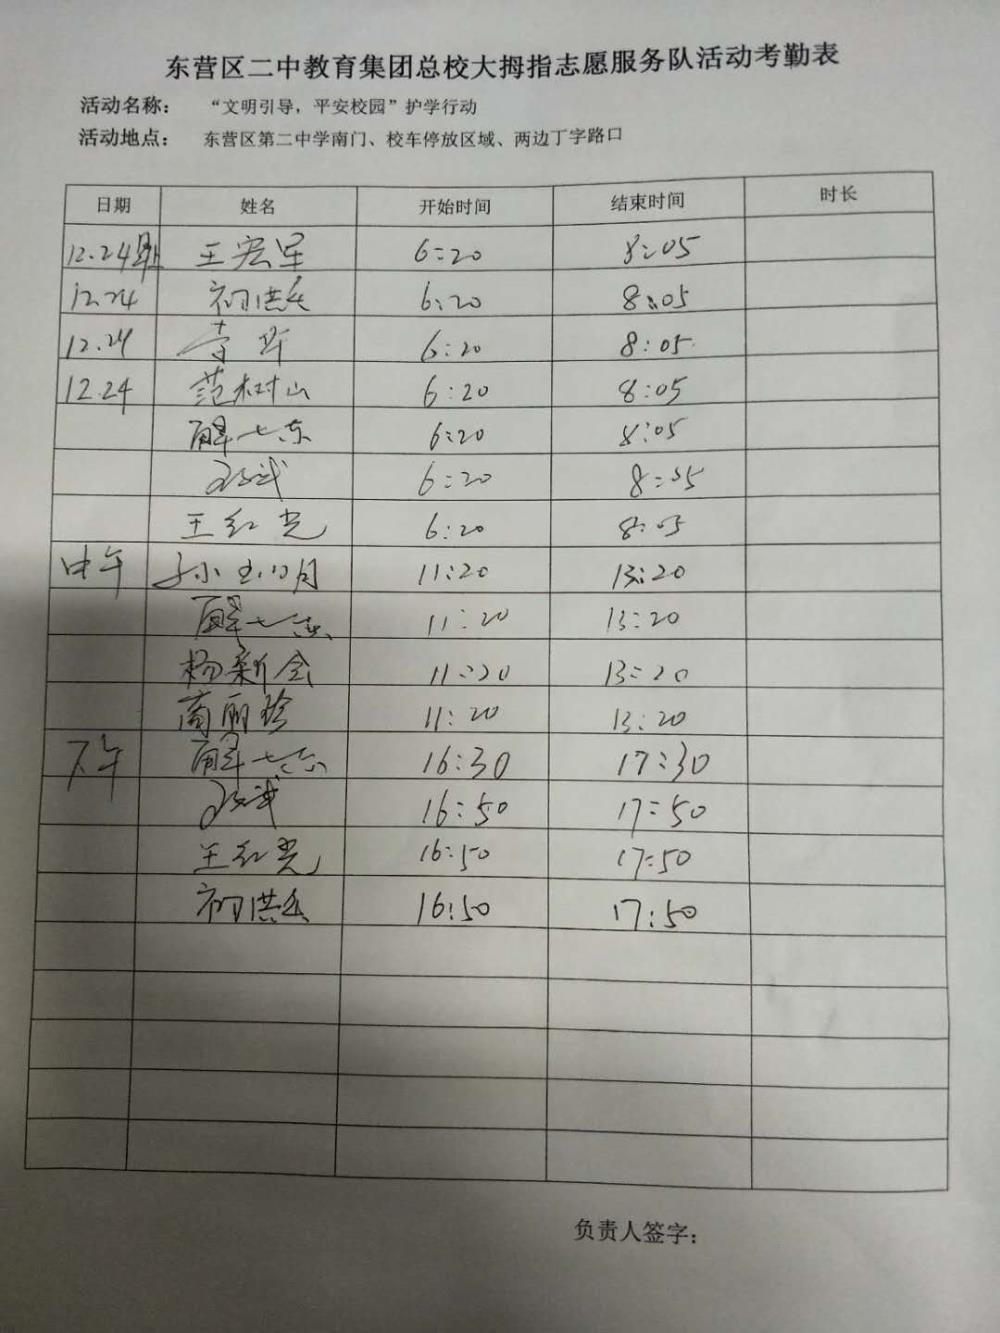 东营区二中教育集团总校大拇指志愿服务队活动考勤表
活动名称： “文明引导，平安校园”护学行动
活动地点： 东营区第二中学南门、校车停放区域、两边丁字路口
日期 姓名 开始时间 结束时间 时长
12.24早上 王宏军 6:20 8:05
12.24 初洪 6:20 8:05
12.24 6:20 8:05
12.24 范树山 6:20 8:05
解 6:20 8:05
6:20 8:05
王红光 6:20 8:05
中午 孙玉明 11:20 13:20
解 11:20 13:20
杨新会 11:20 13:20
商丽珍 11:20 13:20
下午 解 16:30 17:30
16:50 17:50
王红光 16:50 17:50
初洪 16:50 17:50
负责人签字：